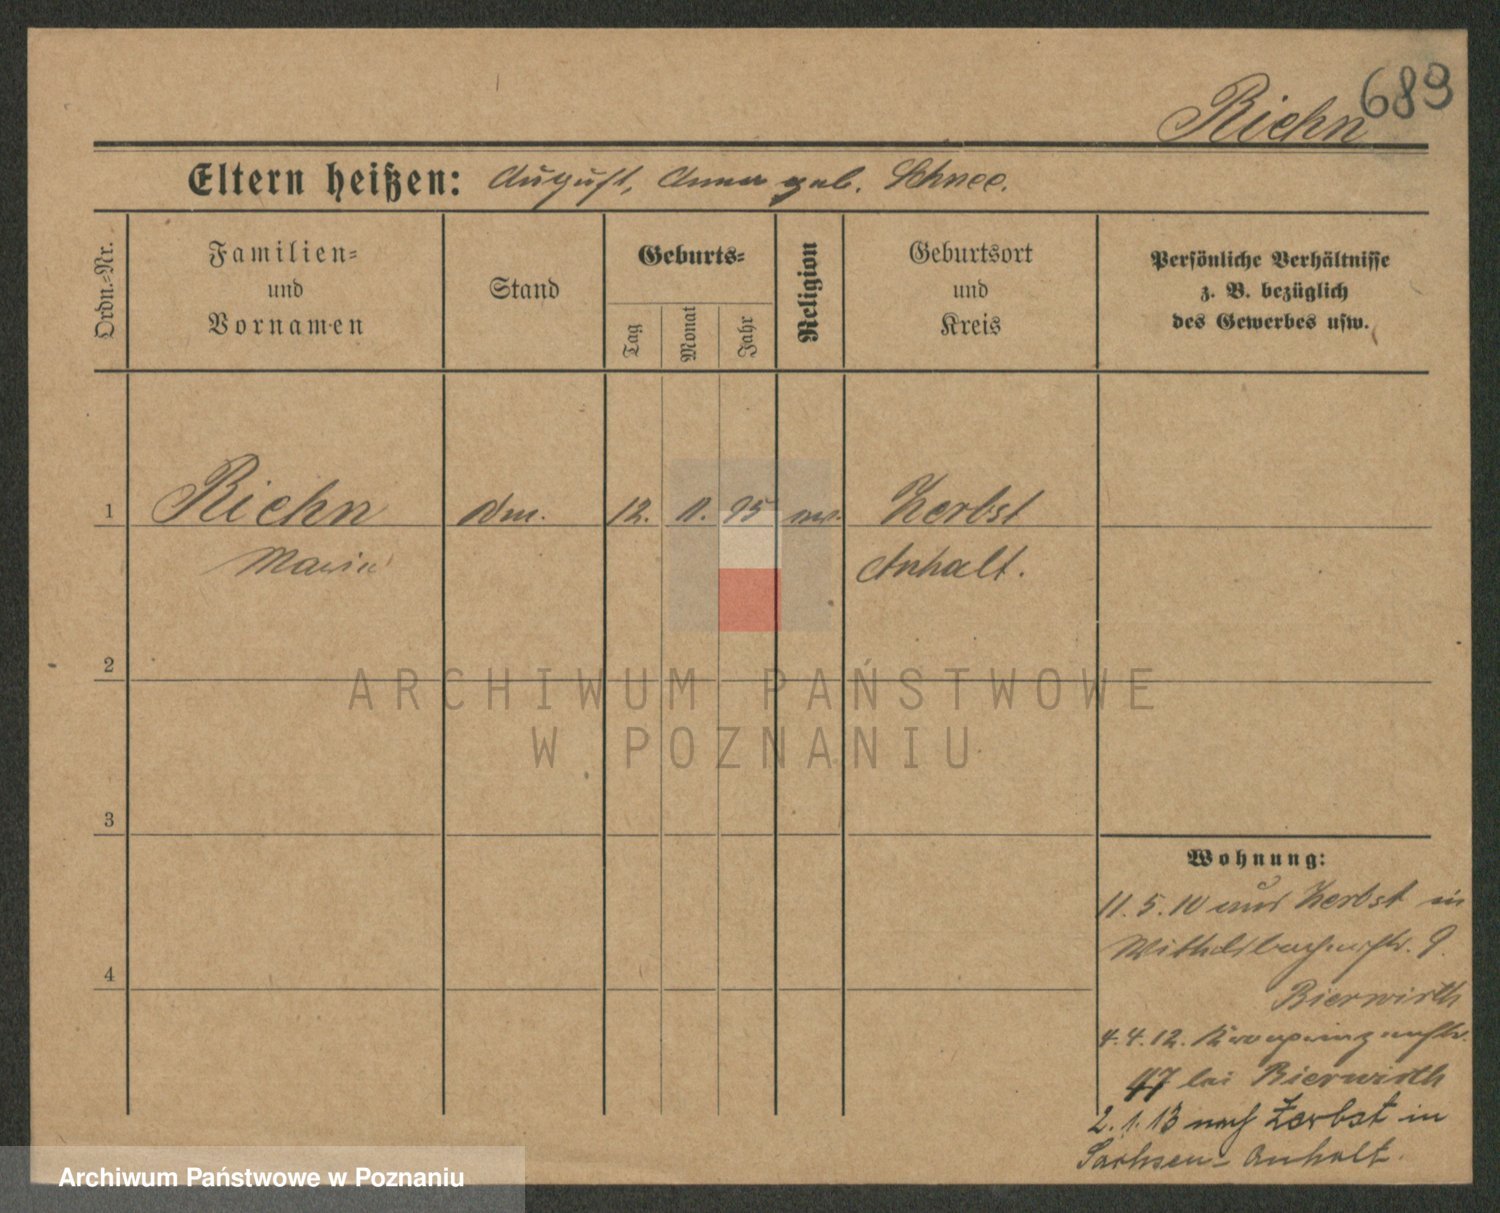 689
Riehn
Eltern heißen: August, Anna geb. Schnee.
Ordn.-Nr.
Familien-
und
Vornamen
Stand
Geburts-
Tag
Monat
Jahr
Religion
Geburtsort
und
Kreis
Persönliche Verhältnisse
z. B. bezüglich
des Gewerbes usw.
1 Riehn 12. 11. 95 Zerbst
Maria Anhalt.
2
ARCHIWUM PAŃSTWOWE
W POZNANIU
3
Wohnung:
11.5.10 aus Zerbst in
9.
4
Bierwirth
4.4.12. Kronprinzenstr.
47 bei Bierwirth
2.1.13 nach Zerbst in
Sachsen-Anhalt.
Archiwum Państwowe w Poznaniu